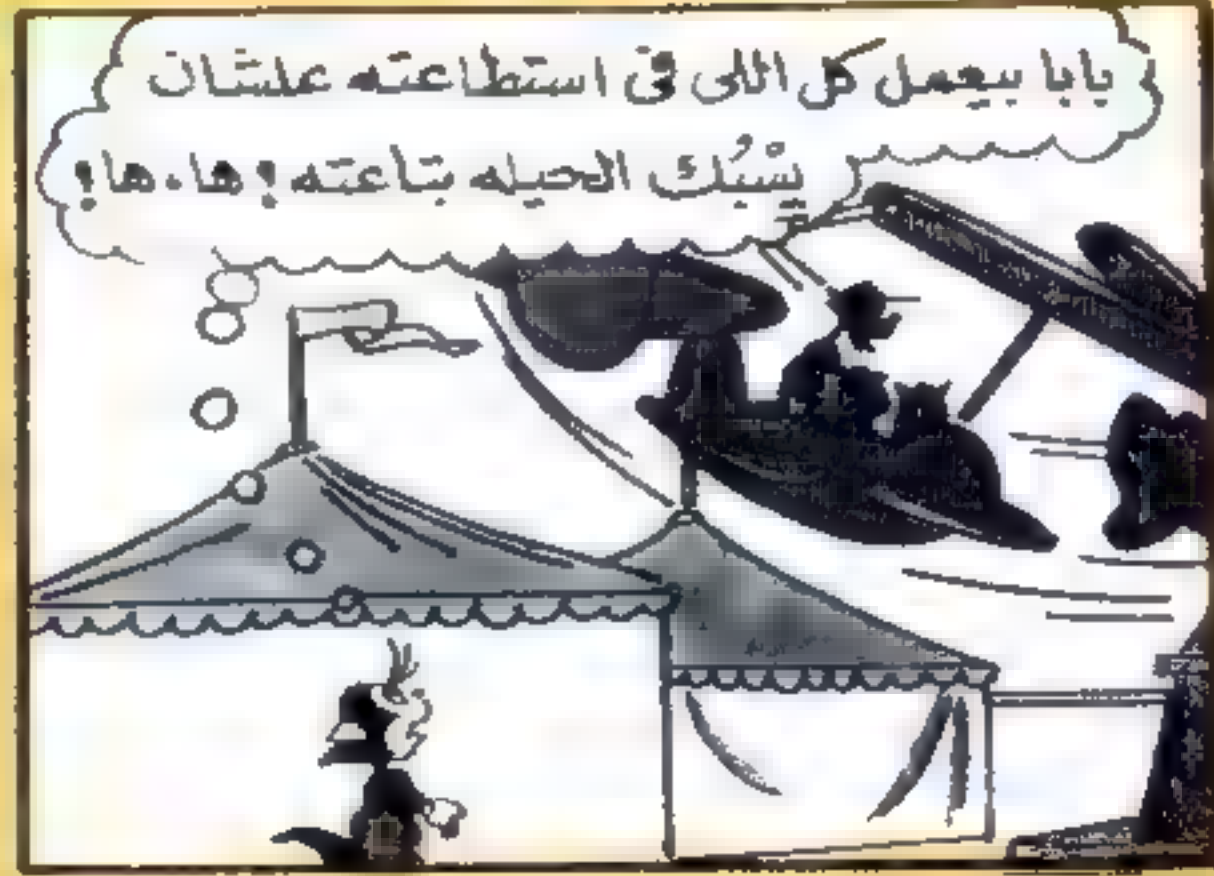 بابا بيعمل كل اللى فى استطاعته علشان
يسْبُك الحيله بتاعته ! ها . ها !